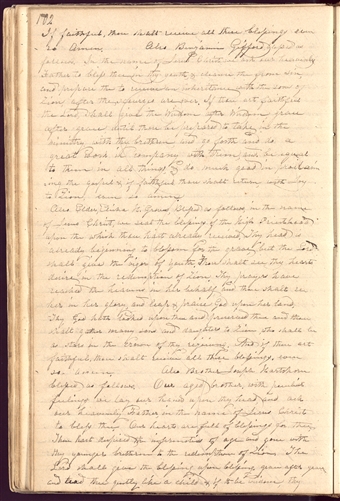 102
If faithful, thou shalt receive all these blessings even
so Amen. Also Benjamin Gifford blessed as
follows. In the name of Jesus Christ we ask our heavenly
Father to bless thee in thy youth & cleanse thee from sin
and prepare thee to receive an inheritance with the sons of
Zion, after the are over, If thou art faithful
the Lord shall give thee Wisdom after Wisdom, grace
after grace until thou be prepared to take the
ministry with thy brethren and go forth and do a
great work in company with them, and be equal
to them in all things, & do much good in proclaim-
ing the gospel & if faithful thou shalt return with joy
to Zion, even so amen.
Also Elder blessed as follows, in the name
of Jesus Christ, we seal the blessings of the high Priesthood
upon thee which thou hast already received, Thy head is
already beginning to blossom for the grave, but the Lord
shall give thee vigor of youth, thou shalt see thy hearts
desire in the redemption of Zion, Thy prayers have
reached the heavens in her behalf, and thou shalt see
her in her glory and leap & praise God upon her land,
Thy God hath looked upon thee and preserved thee and thou
shalt gather many sons and daughters to Zion who shall be
as stars in the crown of thy rejoicing, And if thou art
faithful, thou shalt receive all these blessings, even
so amen. Also Brother Joseph Hartshorn
blessed as follows. Our aged brother, with peculiar
feelings we lay our hands upon thy head, and ask
our heavenly Father in the name of Jesus Christ
to bless thee. Our hearts are full of blessings for thee,
Thou hast despised the infirmities of age and gone with
thy younger brethren to the redemption of Zion. The
Lord shall give thee blessing upon blessing year after year
and lead thee gently like a child & if it be desire thy